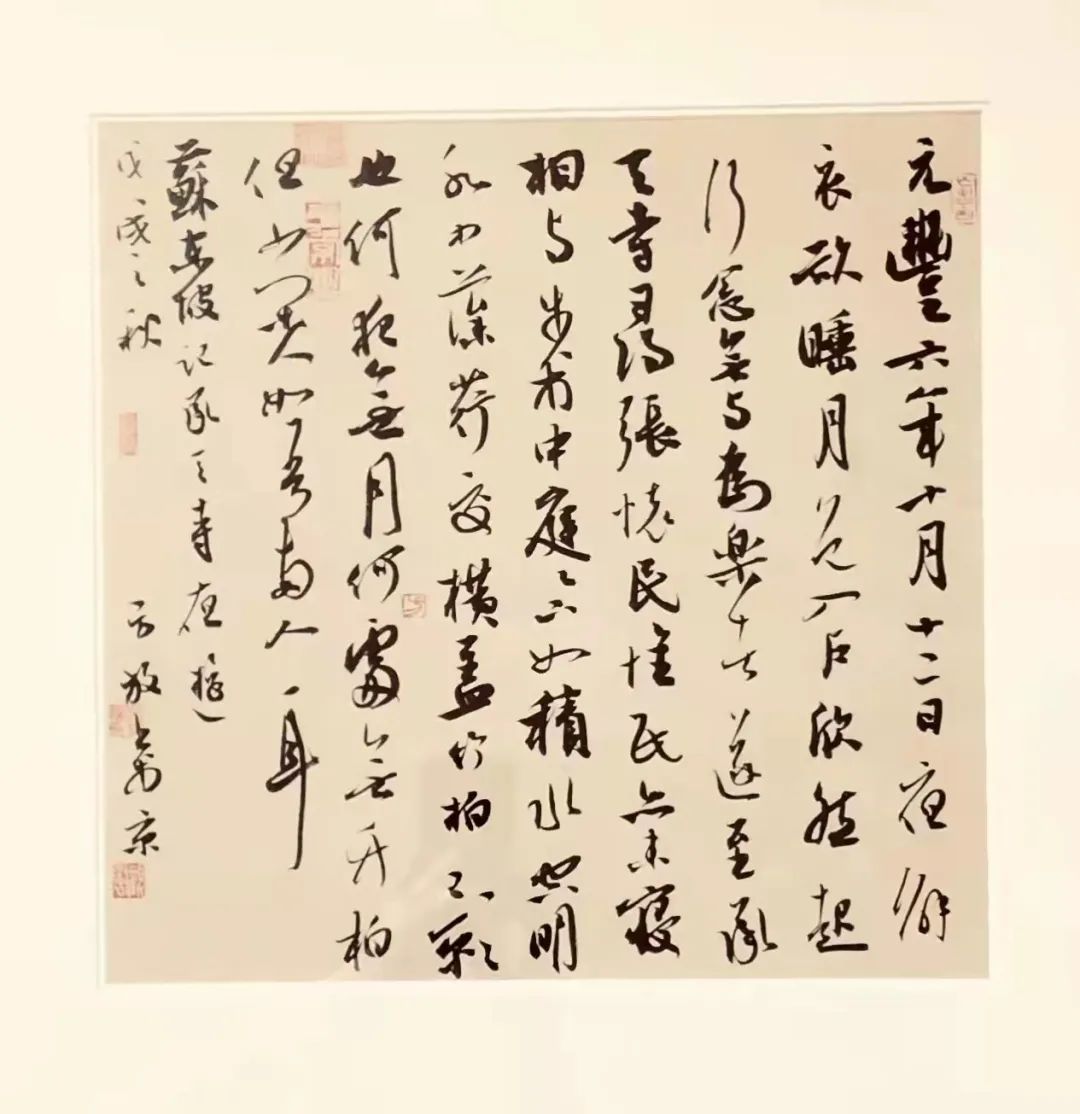 元豐六年十月十二日夜解
衣欲睡月色入户欣然起
行念無与為樂者遂至承
天寺尋張懷民懷民亦未寢
相与步於中庭〻下如積水空明
水中藻荇交横蓋竹柏影
也何夜無月何處無竹柏
但少閑人如吾兩人耳
蘇東坡記承天寺夜遊
戊戌之秋
方放 京